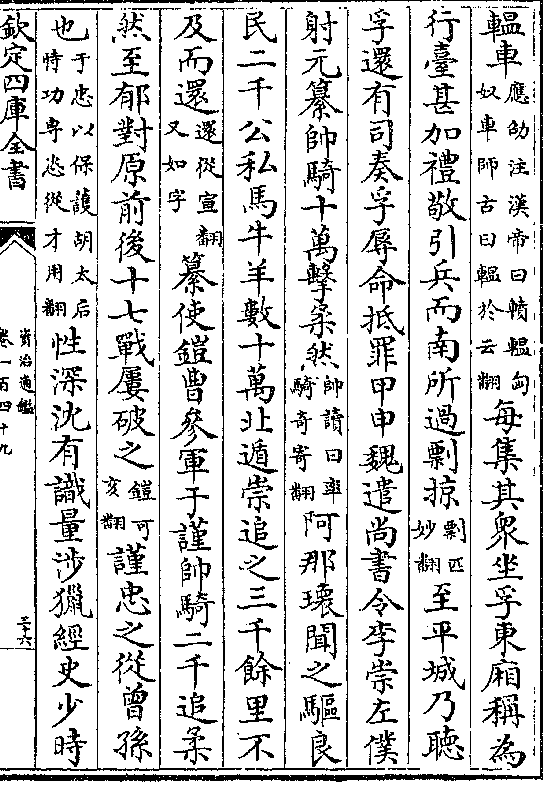 輼車應劭注漢帝曰轒輼匈奴車師古曰輼於云翻每集其衆坐孚東廂稱為
行臺甚加禮敬引兵而南所過剽掠剽匹妙翻至平城乃聽
孚還有司奏孚辱命抵罪甲申魏遣尚書令李崇左僕
射元纂帥騎十萬擊柔然帥讀曰率騎奇寄翻阿那瓌聞之驅良
民二千公私馬牛羊數十萬北遁崇追之三千餘里不
及而還還從宣翻又如字纂使鎧曹參軍于謹帥騎二千追柔
然至郁對原前後十七戰屢破之鎧可亥翻謹忠之從曾孫
也于忠以保護胡太后恃功專恣從才用翻性深沈有識量涉獵經史少時
欽定四庫全書
資治通鑑
卷一百四十九
三十六